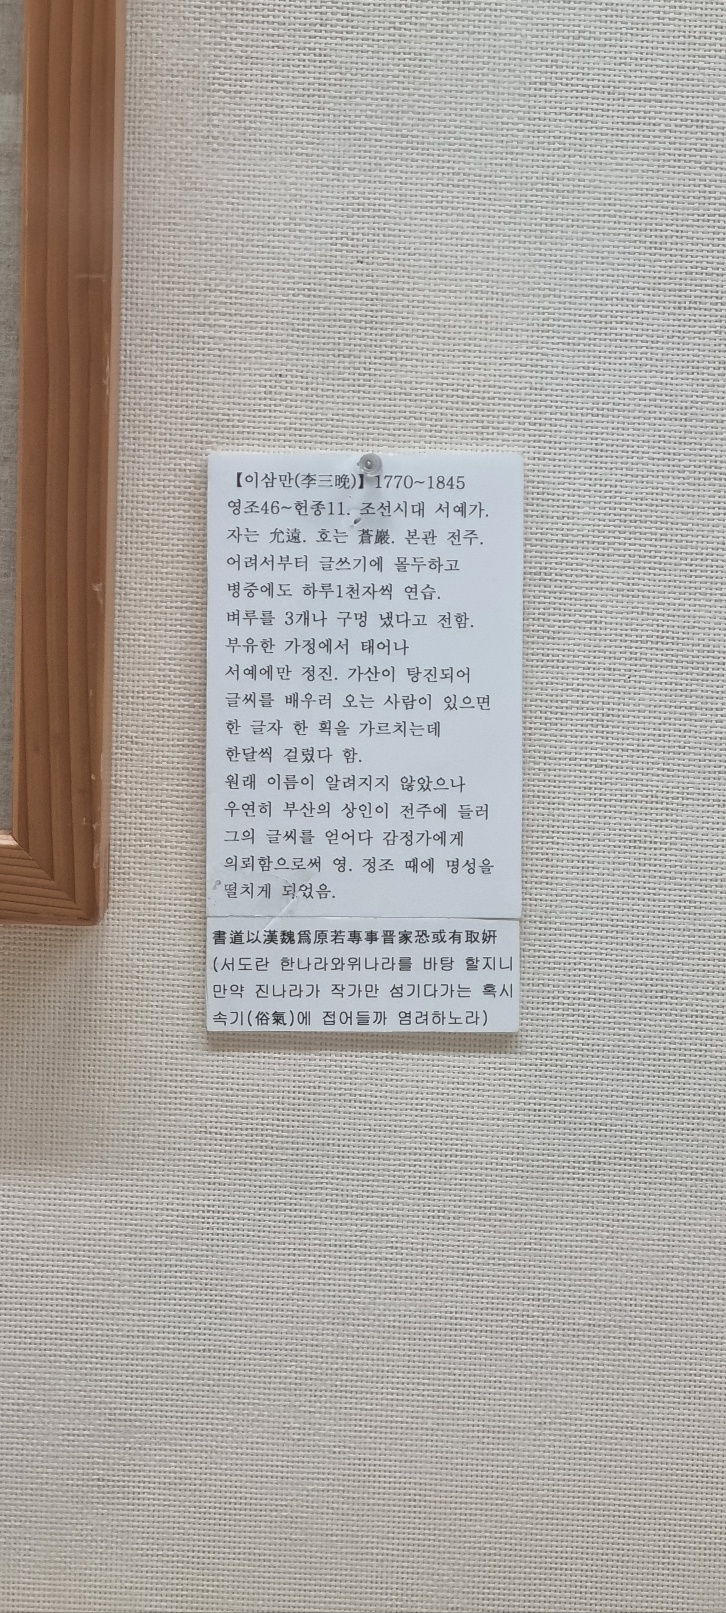 【이삼만(李三晩)】1770~1845
영조46~헌종11. 조선시대 서예가.
자는 允遠. 호는 蒼巖. 본관 전주.
어려서부터 글쓰기에 몰두하고
병중에도 하루1천자씩 연습.
벼루를 3개나 구멍 냈다고 전함.
부유한 가정에서 태어나
서예에만 정진. 가산이 탕진되어
글씨를 배우러 오는 사람이 있으면
한 글자 한 획을 가르치는데
한달씩 걸렸다 함.
원래 이름이 알려지지 않았으나
우연히 부산의 상인이 전주에 들러
그의 글씨를 얻어다 감정가에게
의뢰함으로써 영. 정조 때에 명성을
떨치게 되었음.
書道以漢魏爲原若專事晋家恐或有取姸
(서도란 한나라와위나라를 바탕 할지니
만약 진나라가 작가만 섬기다가는 혹시
속기(俗氣)에 접어들까 염려하노라)